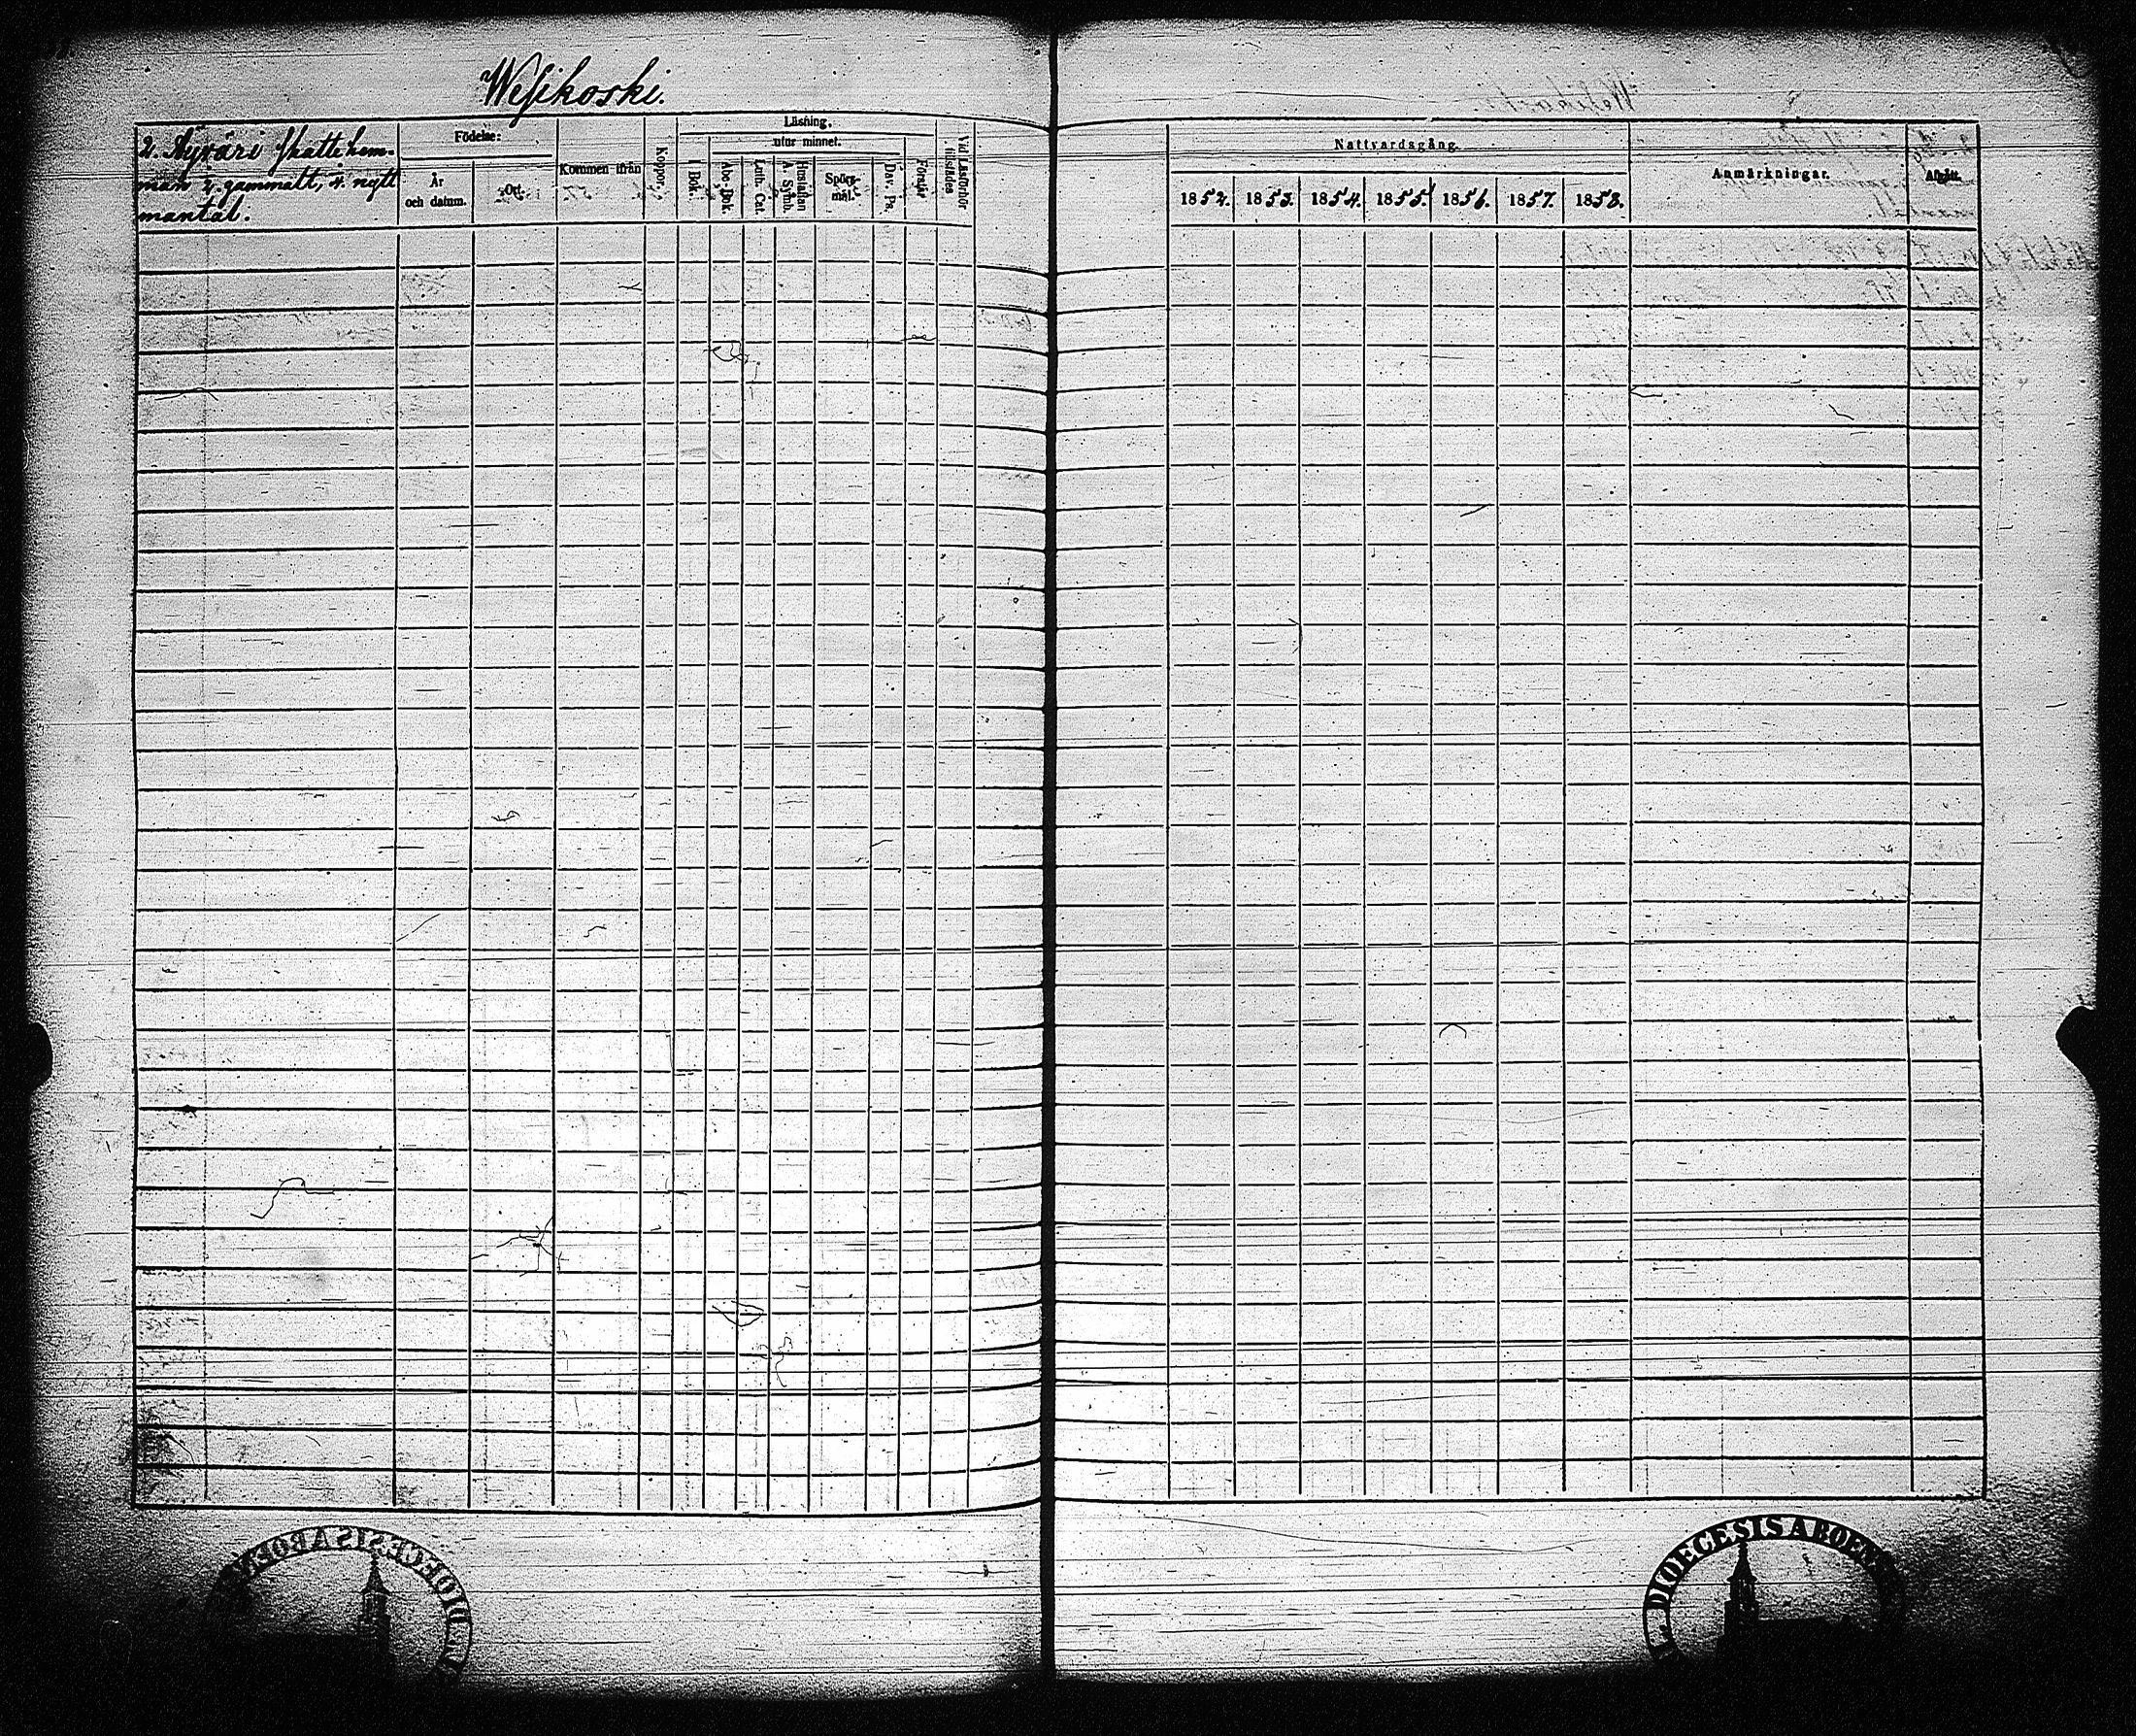 Wesikoski.
2. Äyräri skattehem-
man 2. gammalt, 4. nytt
mantal.
Födelse:
År
och datum.
Ort.
Kommen ifrån
Koppor.
Läsning.
utur minnet.
I Bok.
Abc-Bok.
Luth. Cat.
Hustaflan
A. Symb.
Spörs-
mål.
Dav. Ps.
Förstår
Vid Läsförhör
tillstädes
Nattvardsgång.
1852. 1853. 1854. 1855. 1856. 1857. 1858.
Anmärkningar.
Afgått.
DIOECESIS ABOEN